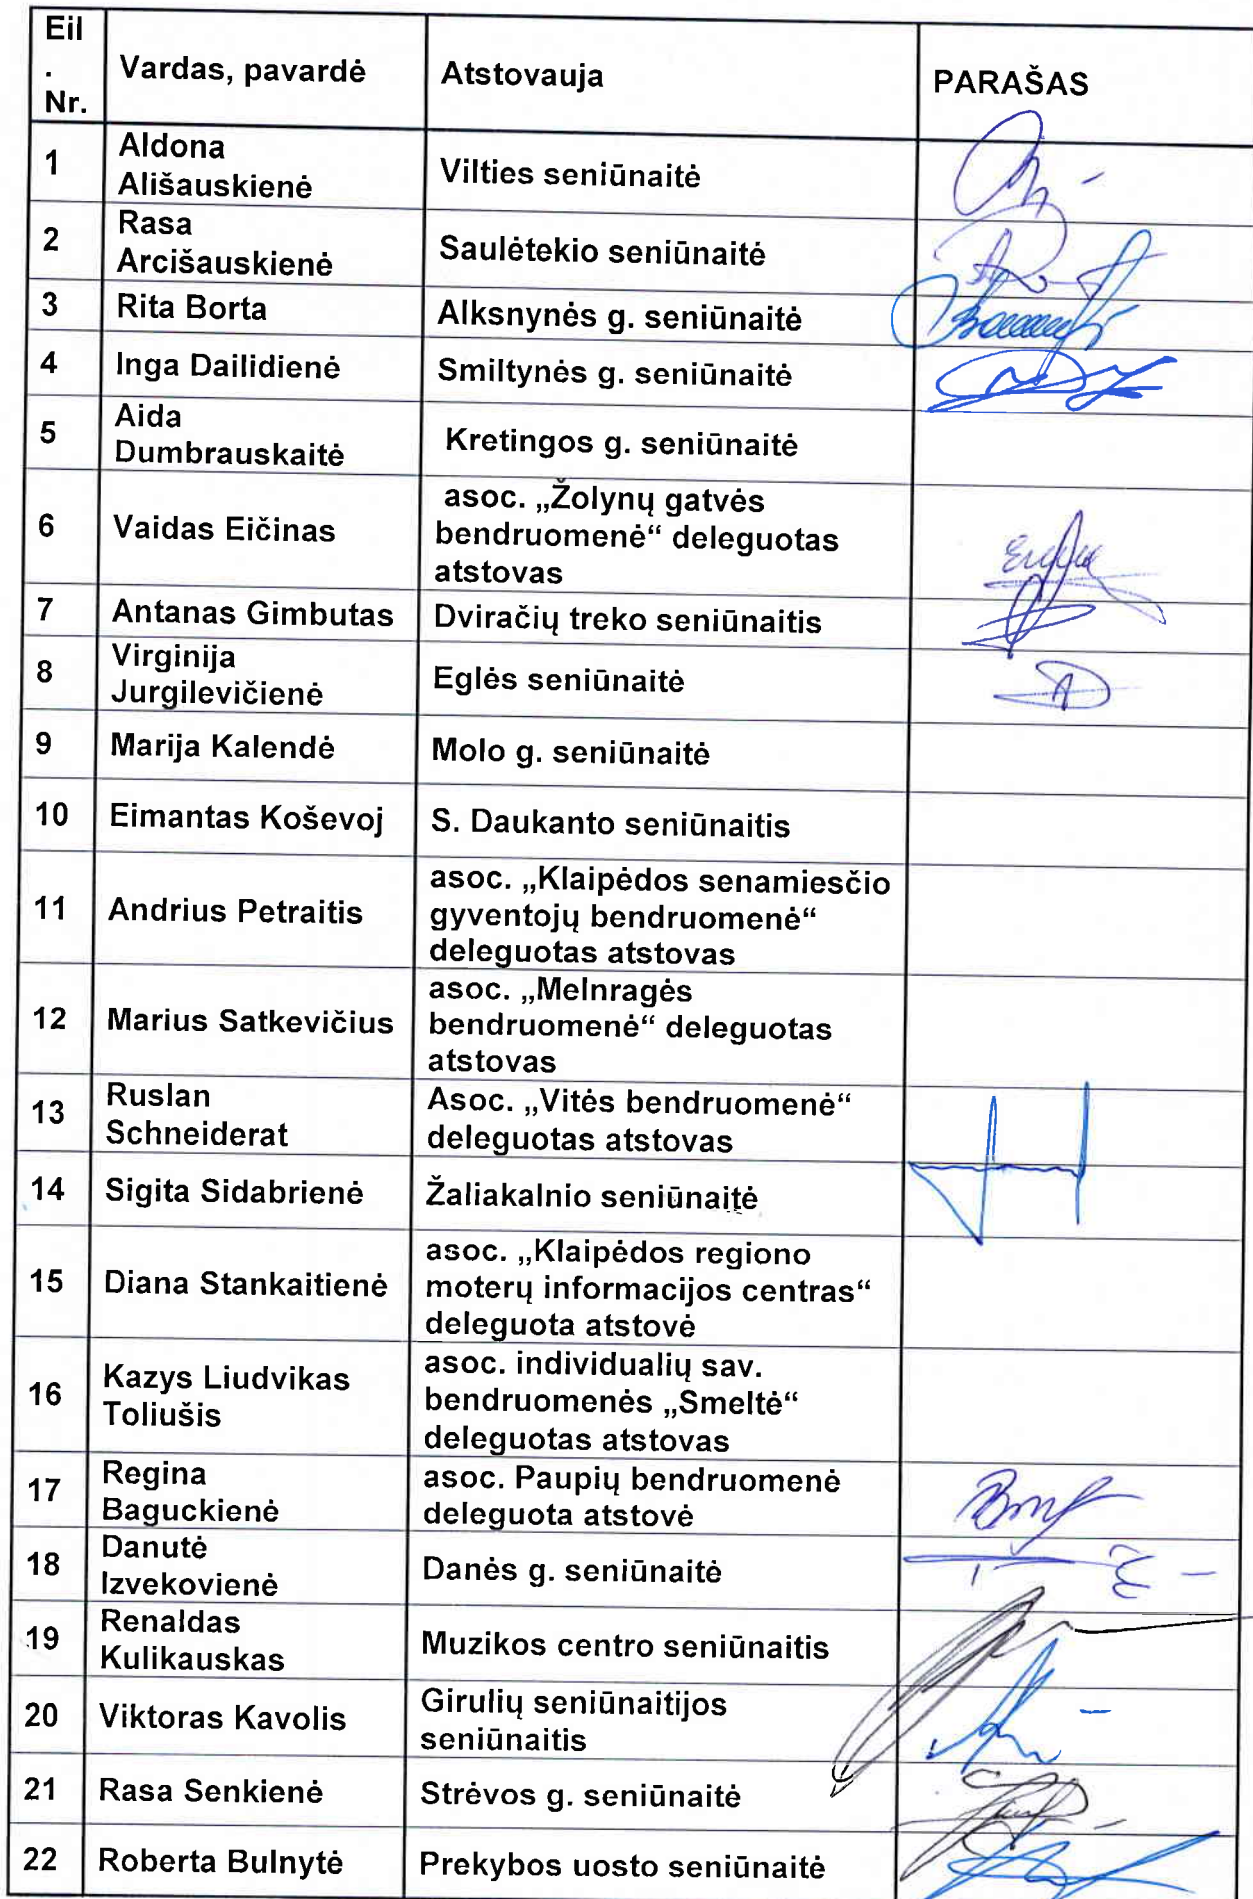 Eil
.
Nr.
Vardas, pavardė
Atstovauja
PARAŠAS
1
Aldona
Ališauskienė
Vilties seniūnaitė
2
Rasa
Arcišauskienė
Saulėtekio seniūnaitė
3
Rita Borta
Alksnynės g. seniūnaitė
4
Inga Dailidienė
Smiltynės g. seniūnaitė
5
Aida
Dumbrauskaitė
Kretingos g. seniūnaitė
6
Vaidas Eičinas
asoc. „Žolynų gatvės
bendruomenė“ deleguotas
atstovas
7
Antanas Gimbutas
Dviračių treko seniūnaitis
8
Virginija
Jurgilevičienė
Eglės seniūnaitė
9
Marija Kalendė
Molo g. seniūnaitė
10
Eimantas Koševoj
S. Daukanto seniūnaitis
11
Andrius Petraitis
asoc. „Klaipėdos senamiesčio
gyventojų bendruomenė“
deleguotas atstovas
12
Marius Satkevičius
asoc. „Melnragės
bendruomenė“ deleguotas
atstovas
13
Ruslan
Schneiderat
Asoc. „Vitės bendruomenė“
deleguotas atstovas
14
Sigita Sidabrienė
Žaliakalnio seniūnaitė
15
Diana Stankaitienė
asoc. „Klaipėdos regiono
moterų informacijos centras“
deleguota atstovė
16
Kazys Liudvikas
Toliušis
asoc. individualių sav.
bendruomenės „Smeltė“
deleguotas atstovas
17
Regina
Baguckienė
asoc. Paupių bendruomenė
deleguota atstovė
18
Danutė
Izvekovienė
Danės g. seniūnaitė
19
Renaldas
Kulikauskas
Muzikos centro seniūnaitis
20
Viktoras Kavolis
Girulių seniūnaitijos
seniūnaitis
21
Rasa Senkienė
Strėvos g. seniūnaitė
22
Roberta Bulnytė
Prekybos uosto seniūnaitė